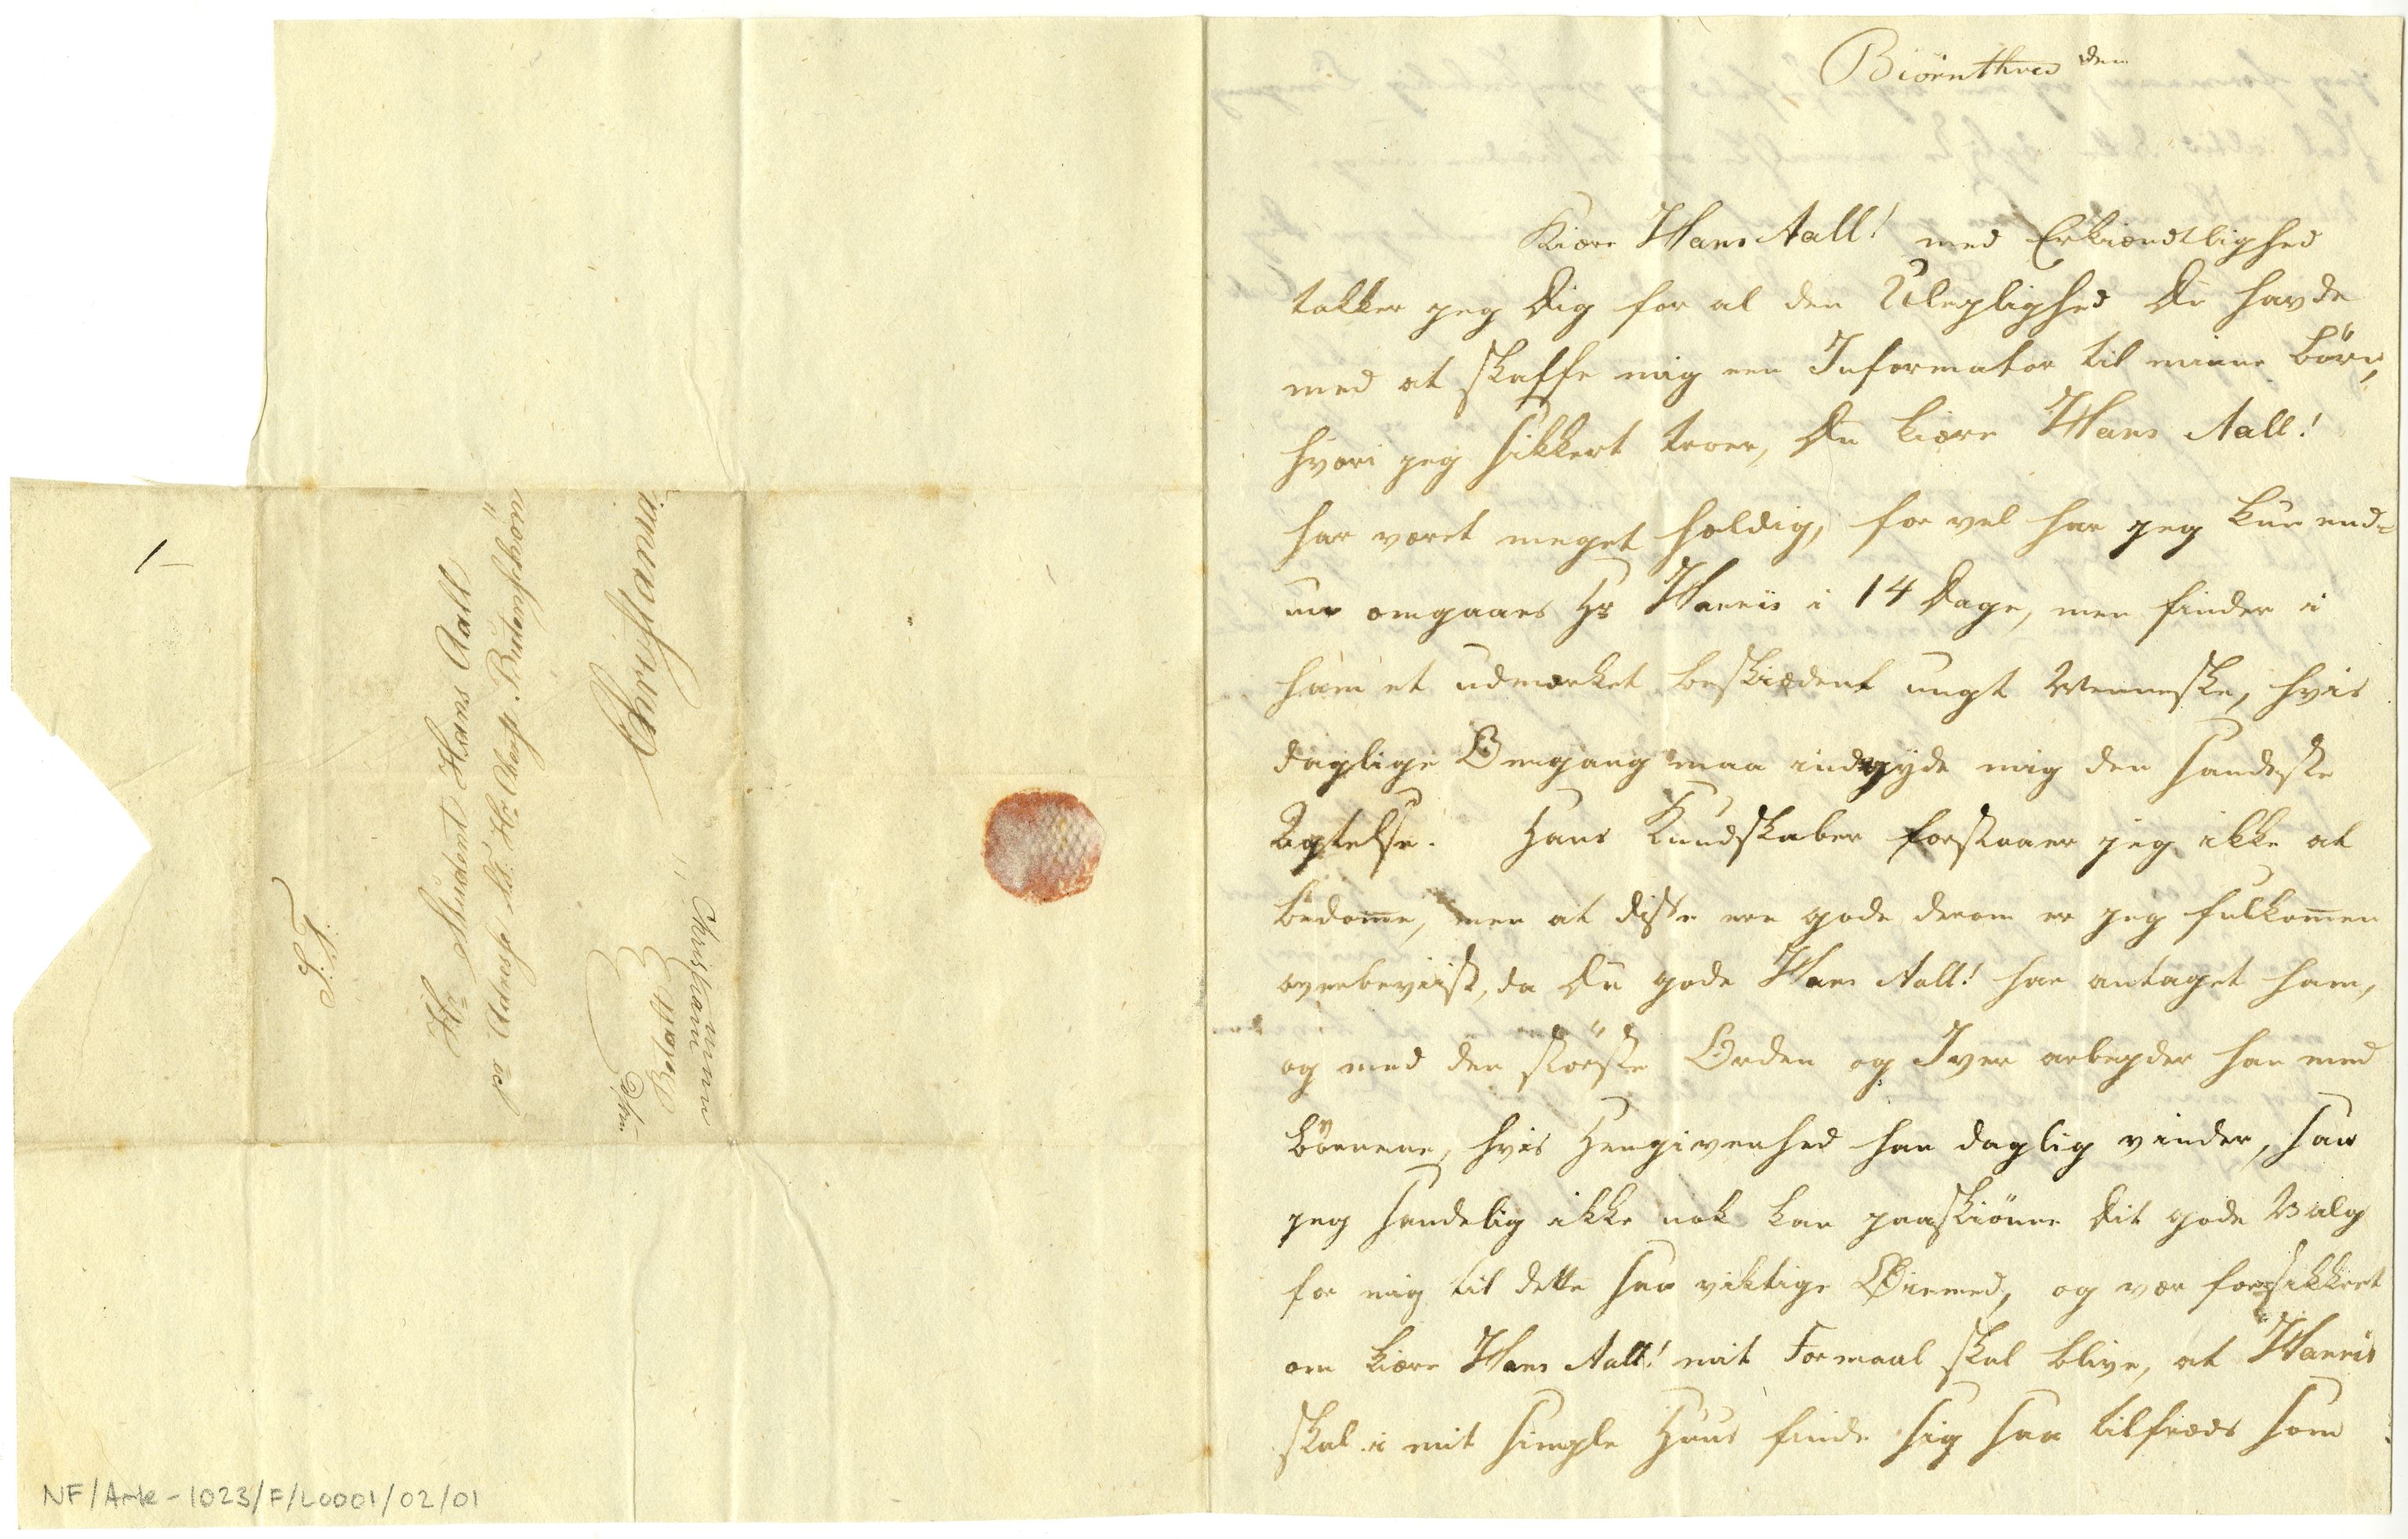 1
S. T.
Hr Student Hans Aall
pr Adresse Hr Butenschön
Christiania
Betalt
NF/Ark-1023/F/L0001/02/01
Biörnthved den
Kiære Hans Aall! med Erkiendtlighed
takker jeg Dig for al den Uleylighed Du havde
med at skaffe mig een Informator til mine Börn,
hvori jeg sikkert troer, Du kiære Hans Aall!
har været meget heldig, for vel har jeg kun end-
nu omgaaes Hr i 14 Dage, men finder i
ham et udmærket beskiedent ungt Menneske, hvis
daglige Omgang maa indgyde mig den sandeste
Agtelse. Hans Kundskaber forstaaer jeg ikke at
bedome, men at disse ere gode derom er jeg fulkomen
overbeviist, da Du gode Hans Aall! har antaget ham,
og med den störste Orden og Iver arbeyder han med
Börnene, hvis Hengivenhed han daglig vinder, saa
jeg sandelig ikke nok kan paaskiönne Dit gode Valg
for mig til dette saa viktige Öiemed, og vær forsikkret
om kiære Hans Aall! mit Formaal skal blive, at
skal i mit simple Huus finde sig saa tilfreds som